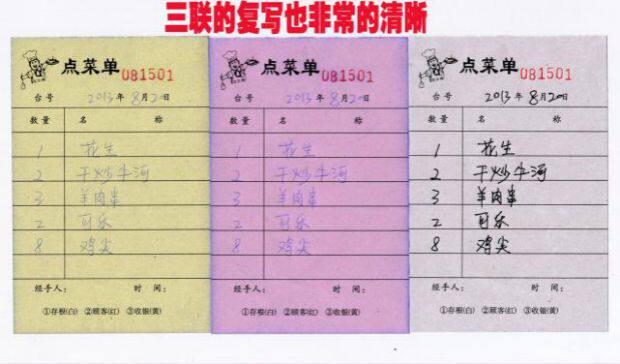 三联的复写也非常的清晰
点菜单 081501
台号 2013年8月20日
数量 名称
1 花生
2 干炒牛河
3 羊肉串
2 可乐
8 鸡尖
经手人： 时间：
①存根(白) ②顾客(红) ③收银(黄)
点菜单 081501
台号 2013年8月20日
数量 名称
1 花生
2 干炒牛河
3 羊肉串
2 可乐
8 鸡尖
经手人： 时间：
①存根(白) ②顾客(红) ③收银(黄)
点菜单 081501
台号 2013年8月20日
数量 名称
1 花生
2 干炒牛河
3 羊肉串
2 可乐
8 鸡尖
经手人： 时间：
①存根(白) ②顾客(红) ③收银(黄)